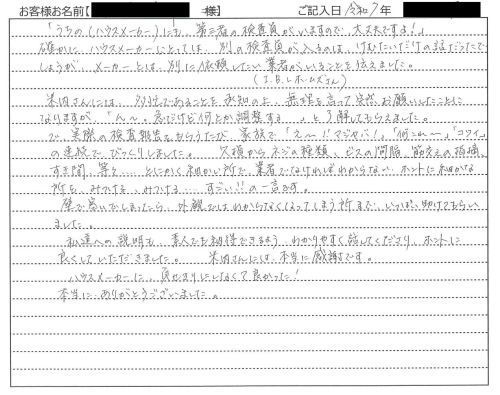 お客様お名前【 様】 ご記入日 令和7年
「うちの(ハウスメーカー)にも、第三者の検査員がいますので、大丈夫ですよ!」
確かに、ハウスメーカーにとっては、別の検査員が入るのは、けむたいだけの話だったで
しょうが、メーカーとは、別に依頼したい業者がいることを伝えました。
(J.B.Lホームズさん)
米内さんには、多忙であることを承知の上、無理を言って突然お願いしたことに
なりますが、「ん〜。急だけど何とか調整する。」と了解してもらえました。
で、実際の検査報告をもらうたび、家族で「え〜!!マジヤバ!」「何これ〜」「コワイ」
の連続でびっくりしました。 穴構からネジの種類、ビスの間隔、筋交えの指摘、
すき間、等々… とにかく細かい所で、業者でなければわからない、ホントに細かな
所を、みつける、みつける… すごい!!の一言です。
壁で塞いでしまったら、外観ではわからなくなってしまう所まで、いっぱい助けてもらい
ました。
私達への説明も、素人でも納得できるよう わかりやすく話してくださり、ホントに
良くしていただきました。 米内さんには、本当に感謝です。
ハウスメーカーに、負かせきりにしなくて良かった!
本当に、ありがとうございました。